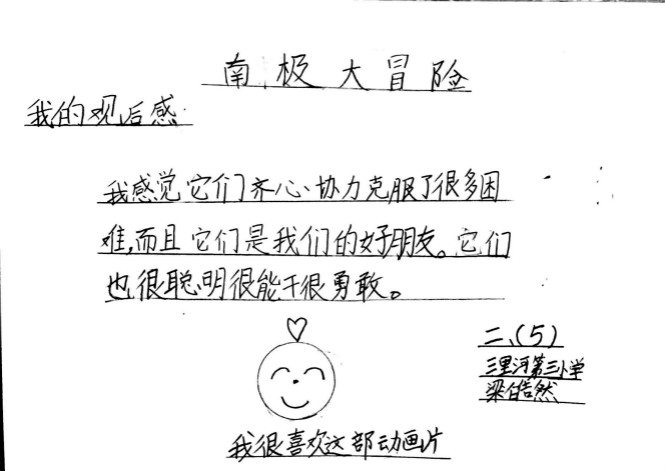 南极大冒险
我的观后感
我感觉它们齐心协力克服了很多困
难,而且它们是我们的好朋友。它们
也很聪明很能干很勇敢。
二、(5)
三里河第三小学
梁皓然
我很喜欢这部动画片